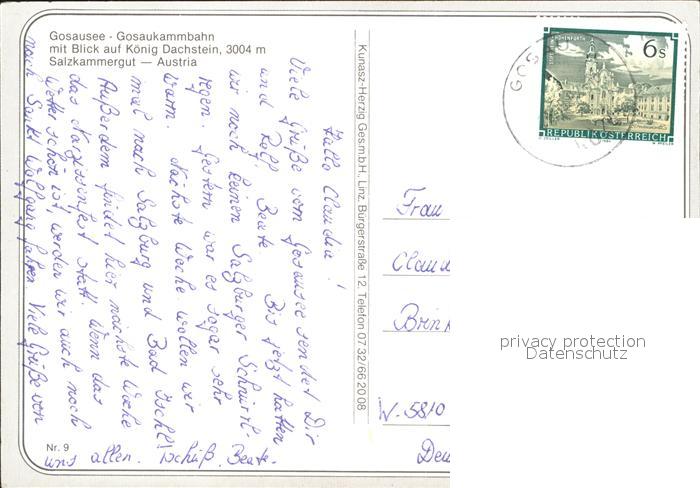 Gosausee - Gosaukammbahn
mit Blick auf König Dachstein, 3004 m
Salzkammergut — Austria
Hallo Claudia!
Viele Grüße vom Gosausee sendet Dir
und Rolf. Beate. Bis jetzt hatten
wir noch keinen Salzburger Schnürl-
regen. Gestern war es sogar sehr
warm. Nächste Woche wollen wir
mal nach Salzburg und Bad Ischl!
Außerdem findet hier nächste Woche
das Narzissenfest statt. Wenn das
Wetter schön ist, werden wir auch noch
nach Sankt Wolfgang fahren. Viele Grüße von
uns allen. Tschüß. Beate.
Nr. 9
Kunasz-Herzig Ges.m.b.H., Linz, Bürgerstraße 12, Telefon 07 32/66 20 08
GOSAU
6s
REPUBLIK ÖSTERREICH
Frau
Claud
Brink
W-5810
Deu
privacy protection
Datenschutz